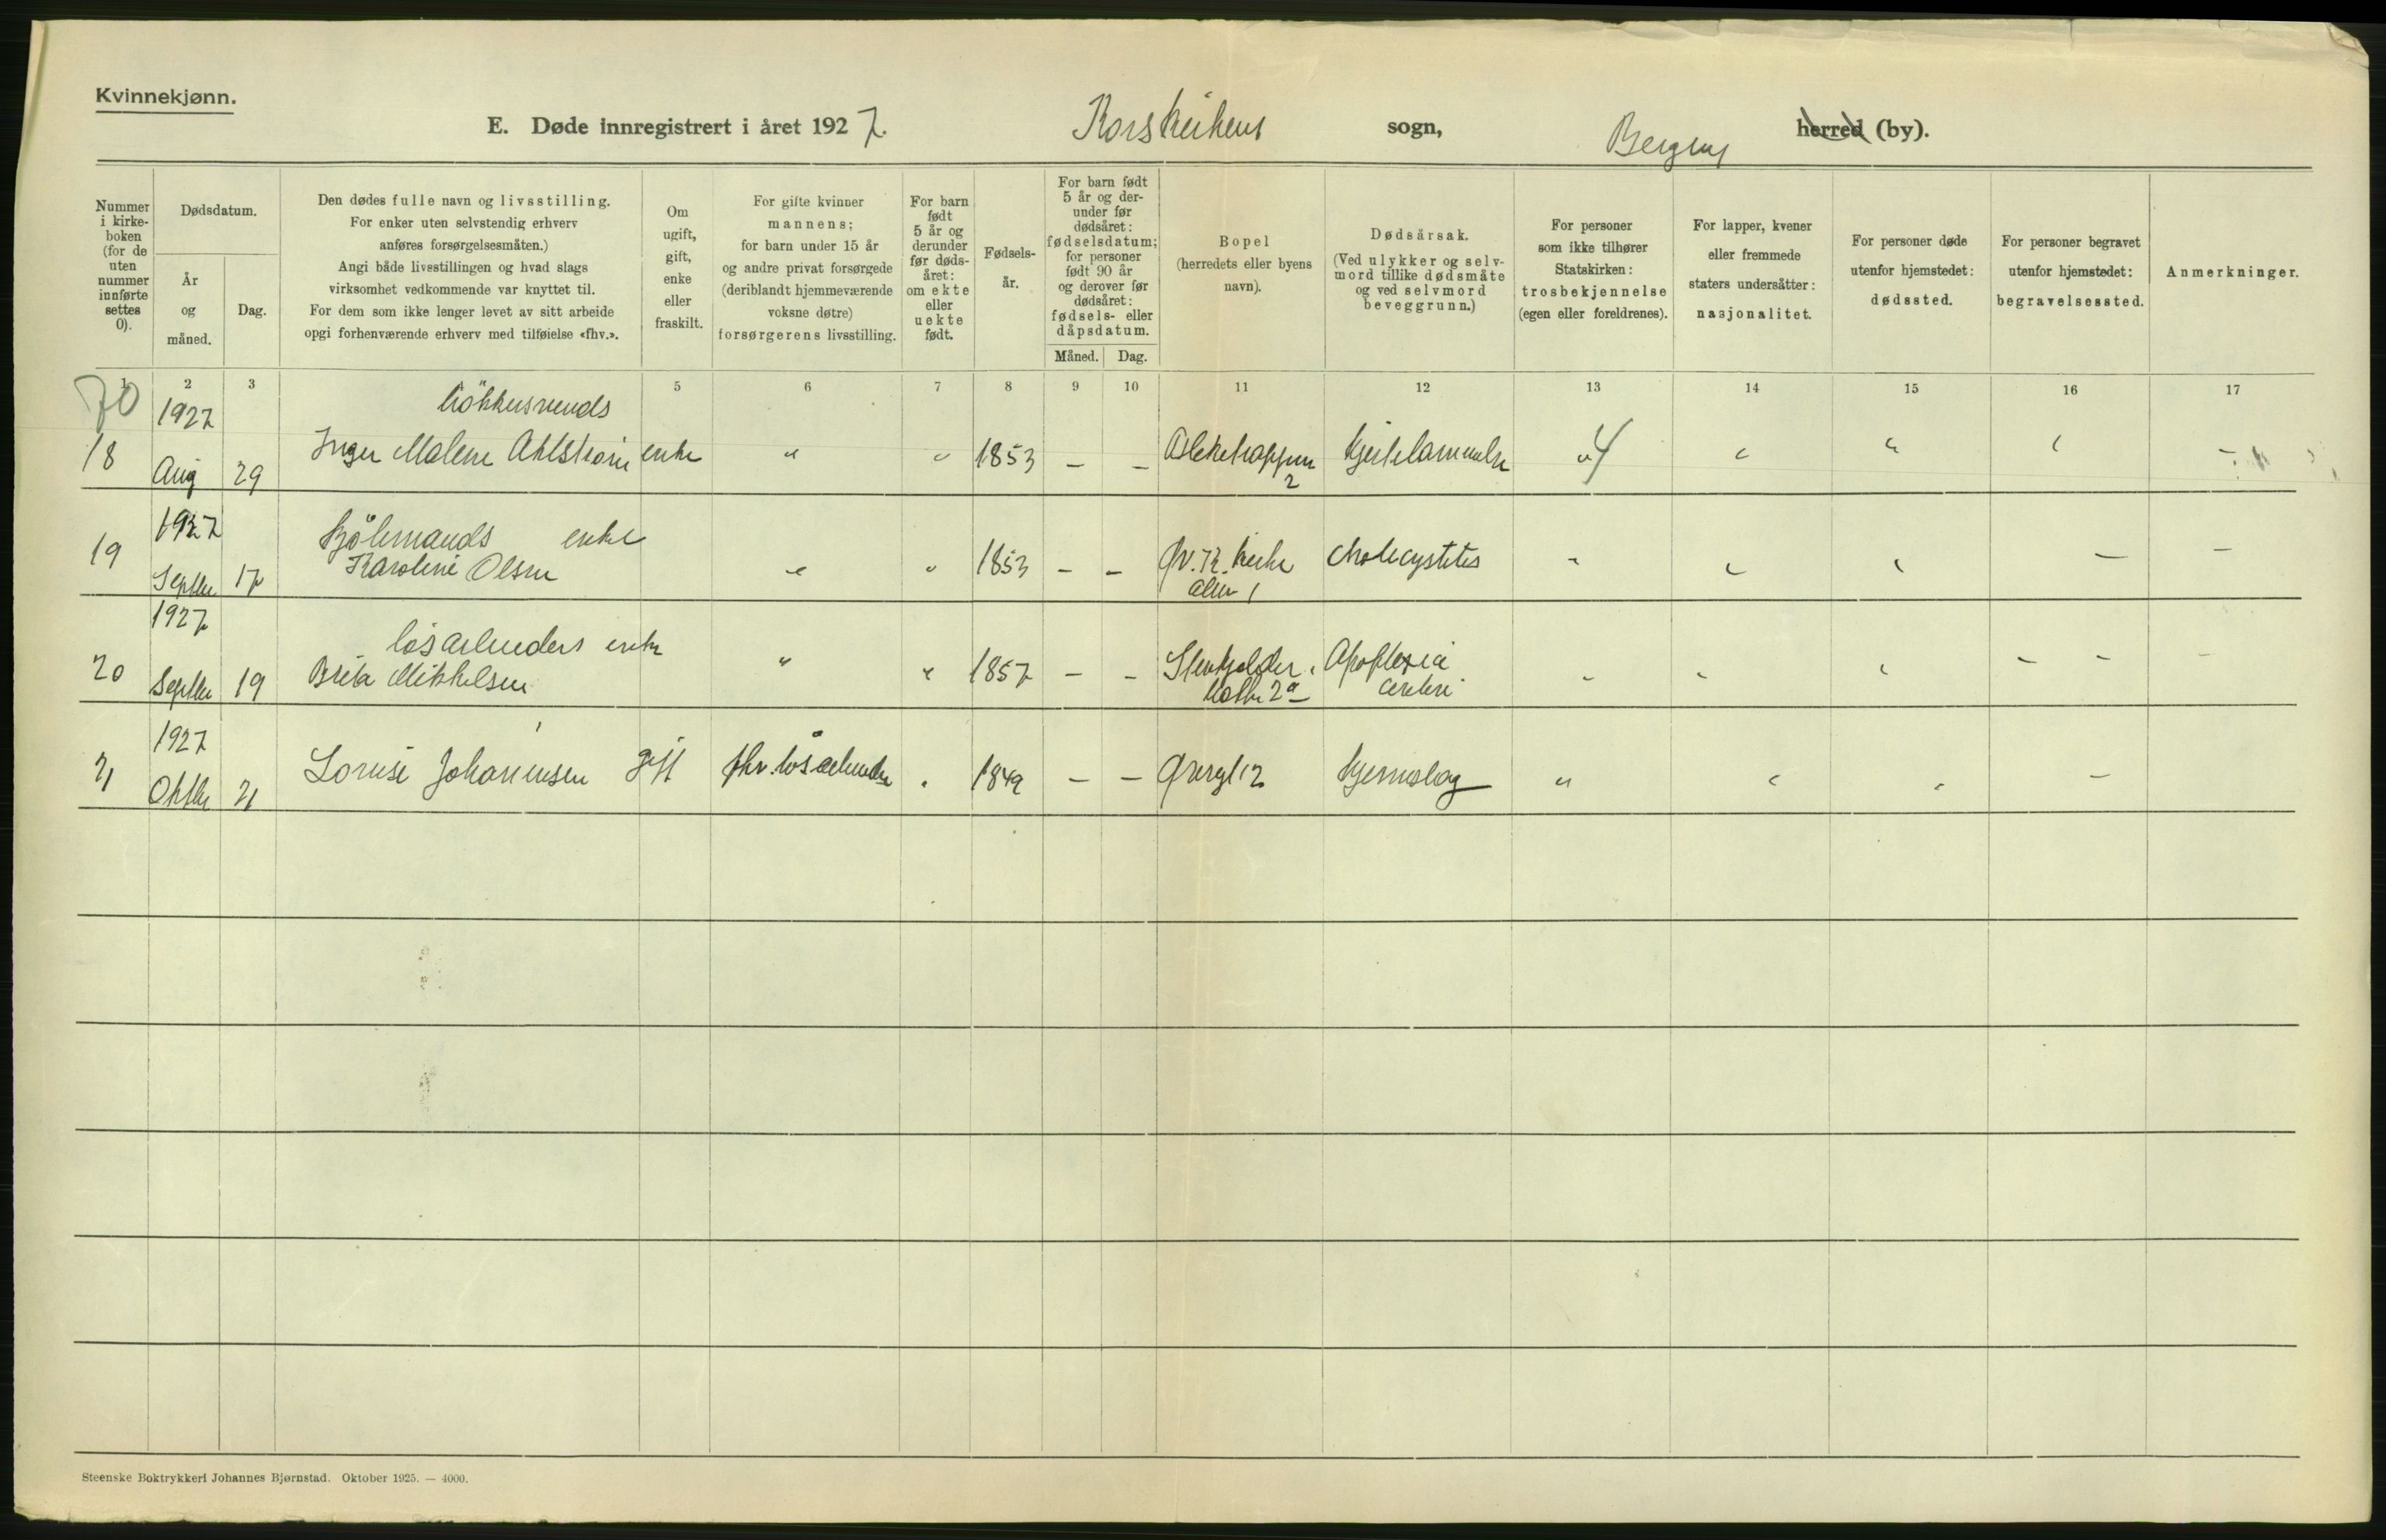 Kvinnekjønn.
E. Døde innregistrert i året 1927. Korskirkens sogn, Bergen herred (by).
Nummer i kirke-boken (for de uten nummer innførte settes 0).
Dødsdatum.
År og måned.
Dag.
Den dødes fulle navn og livsstilling.
For enker uten selvstendig erhverv
anføres forsørgelsesmåten.)
Angi både livsstillingen og hvad slags
virksomhet vedkommende var knyttet til.
For dem som ikke lenger levet av sitt arbeide
opgi forhenværende erhverv med tilføielse «fhv.».
Om ugift, gift, enke eller fraskilt.
For gifte kvinner
mannens;
for barn under 15 år
og andre privat forsørgede
(deriblandt hjemmeværende
voksne døtre)
forsørgerens livsstilling.
For barn født 5 år og derunder før døds-året: om ekte eller uekte født.
Fødsels-år.
For barn født 5 år og der-under før dødsåret: fødselsdatum; for personer født 90 år og derover før dødsåret: fødsels- eller dåpsdatum.
Måned. Dag.
Bopel
(herredets eller byens
navn).
Dødsårsak.
(Ved ulykker og selv-
mord tillike dødsmåte
og ved selvmord
beveggrunn.)
For personer
som ikke tilhører
Statskirken:
trosbekjennelse
(egen eller foreldrenes).
For lapper, kvener
eller fremmede
staters undersåtter:
nasjonalitet.
For personer døde
utenfor hjemstedet:
dødssted.
For personer begravet
utenfor hjemstedet:
begravelsessted.
Anmerkninger.
1 2 3 5 6 7 8 9 10 11 12 13 14 15 16 17
70
1927
18 Aug 29 Inger Malene Ahlstrøm enke " " 1853 - - 2 Hjertelammelse " 4 " " " -
1927
19 Septbr 17 enke
Karoline Olsen " " 1853 - - cholecystitis " " " - -
alm 1
1927
løsarbeiders enke
20 Septbr 19 Brita Mikkelsen " " 1857 - - Apoplexia " " " - - -
2a cerebri
1927
21 Oktbr 21 Lovise Johannesen gift fhv. løsarbeider " 1849 - - 12 Hjerneslag " " " -
Steenske Boktrykkeri Johannes Bjørnstad. Oktober 1925. — 4000.